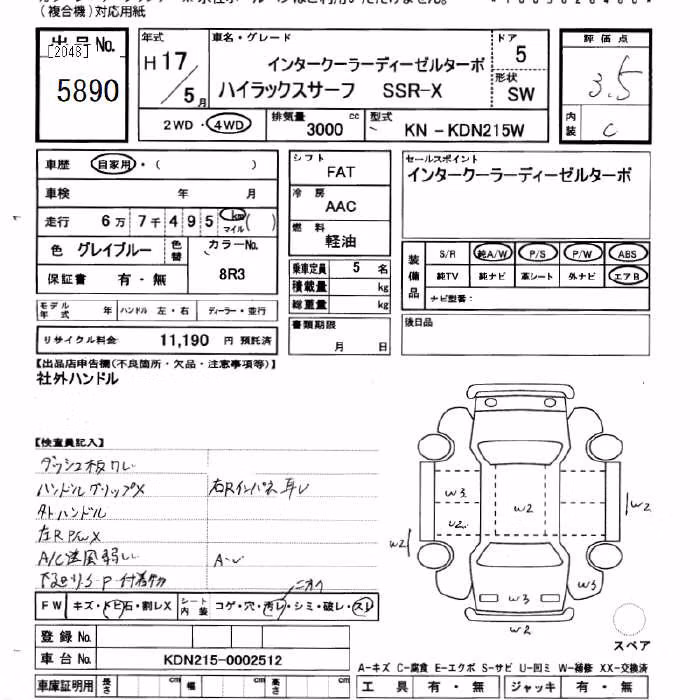 (複合機)対応用紙
出品No.
[2048]
5890
年式
H17
5月
車名・グレード
インタークーラーディーゼルターボ
ハイラックスサーフ SSR-X
ドア
5
形状
SW
2WD・4WD
排気量
3000 cc
型式
KN-KDN215W
評価点
3.5
内装
C
車歴 自家用・( )
車検 年 月
走行 6万7千495 km マイル( )
色 グレイブルー 色替
カラーNo.
8R3
保証書 有・無
シフト
FAT
冷房
AAC
燃料
軽油
乗車定員 5 名
積載量 kg
総重量 kg
セールスポイント
インタークーラーディーゼルターボ
装備品
S/R 純A/W P/S P/W ABS
純TV 純ナビ 革シート 外ナビ エアB
ナビ型番:
モデル年式 年 ハンドル 左・右 ディーラー・並行
リサイクル料金 11,190 円 預託済
書類期限
月 日
後日品
【出品店申告欄(不良箇所・欠品・注意事項等)】
社外ハンドル
【検査員記入】
ダッシュ板ワレ
ハンドルグリップX
外ハンドル
左R P/W X
A/C送風弱い
FW キズ・トビ石・割レX シート内装 コゲ・穴・汚レ・シミ・破レ・スレ
ニオイ
W3
W2
U2
W2
W2
W3
W3
W2
スペア
登録No.
車台No. KDN215-0002512
車庫証明用 長さ cm 幅 cm 高さ cm
A-キズ C-腐食 E-エクボ S-サビ U-凹ミ W-補修 XX-交換済
工具 有・無 ジャッキ 有・無